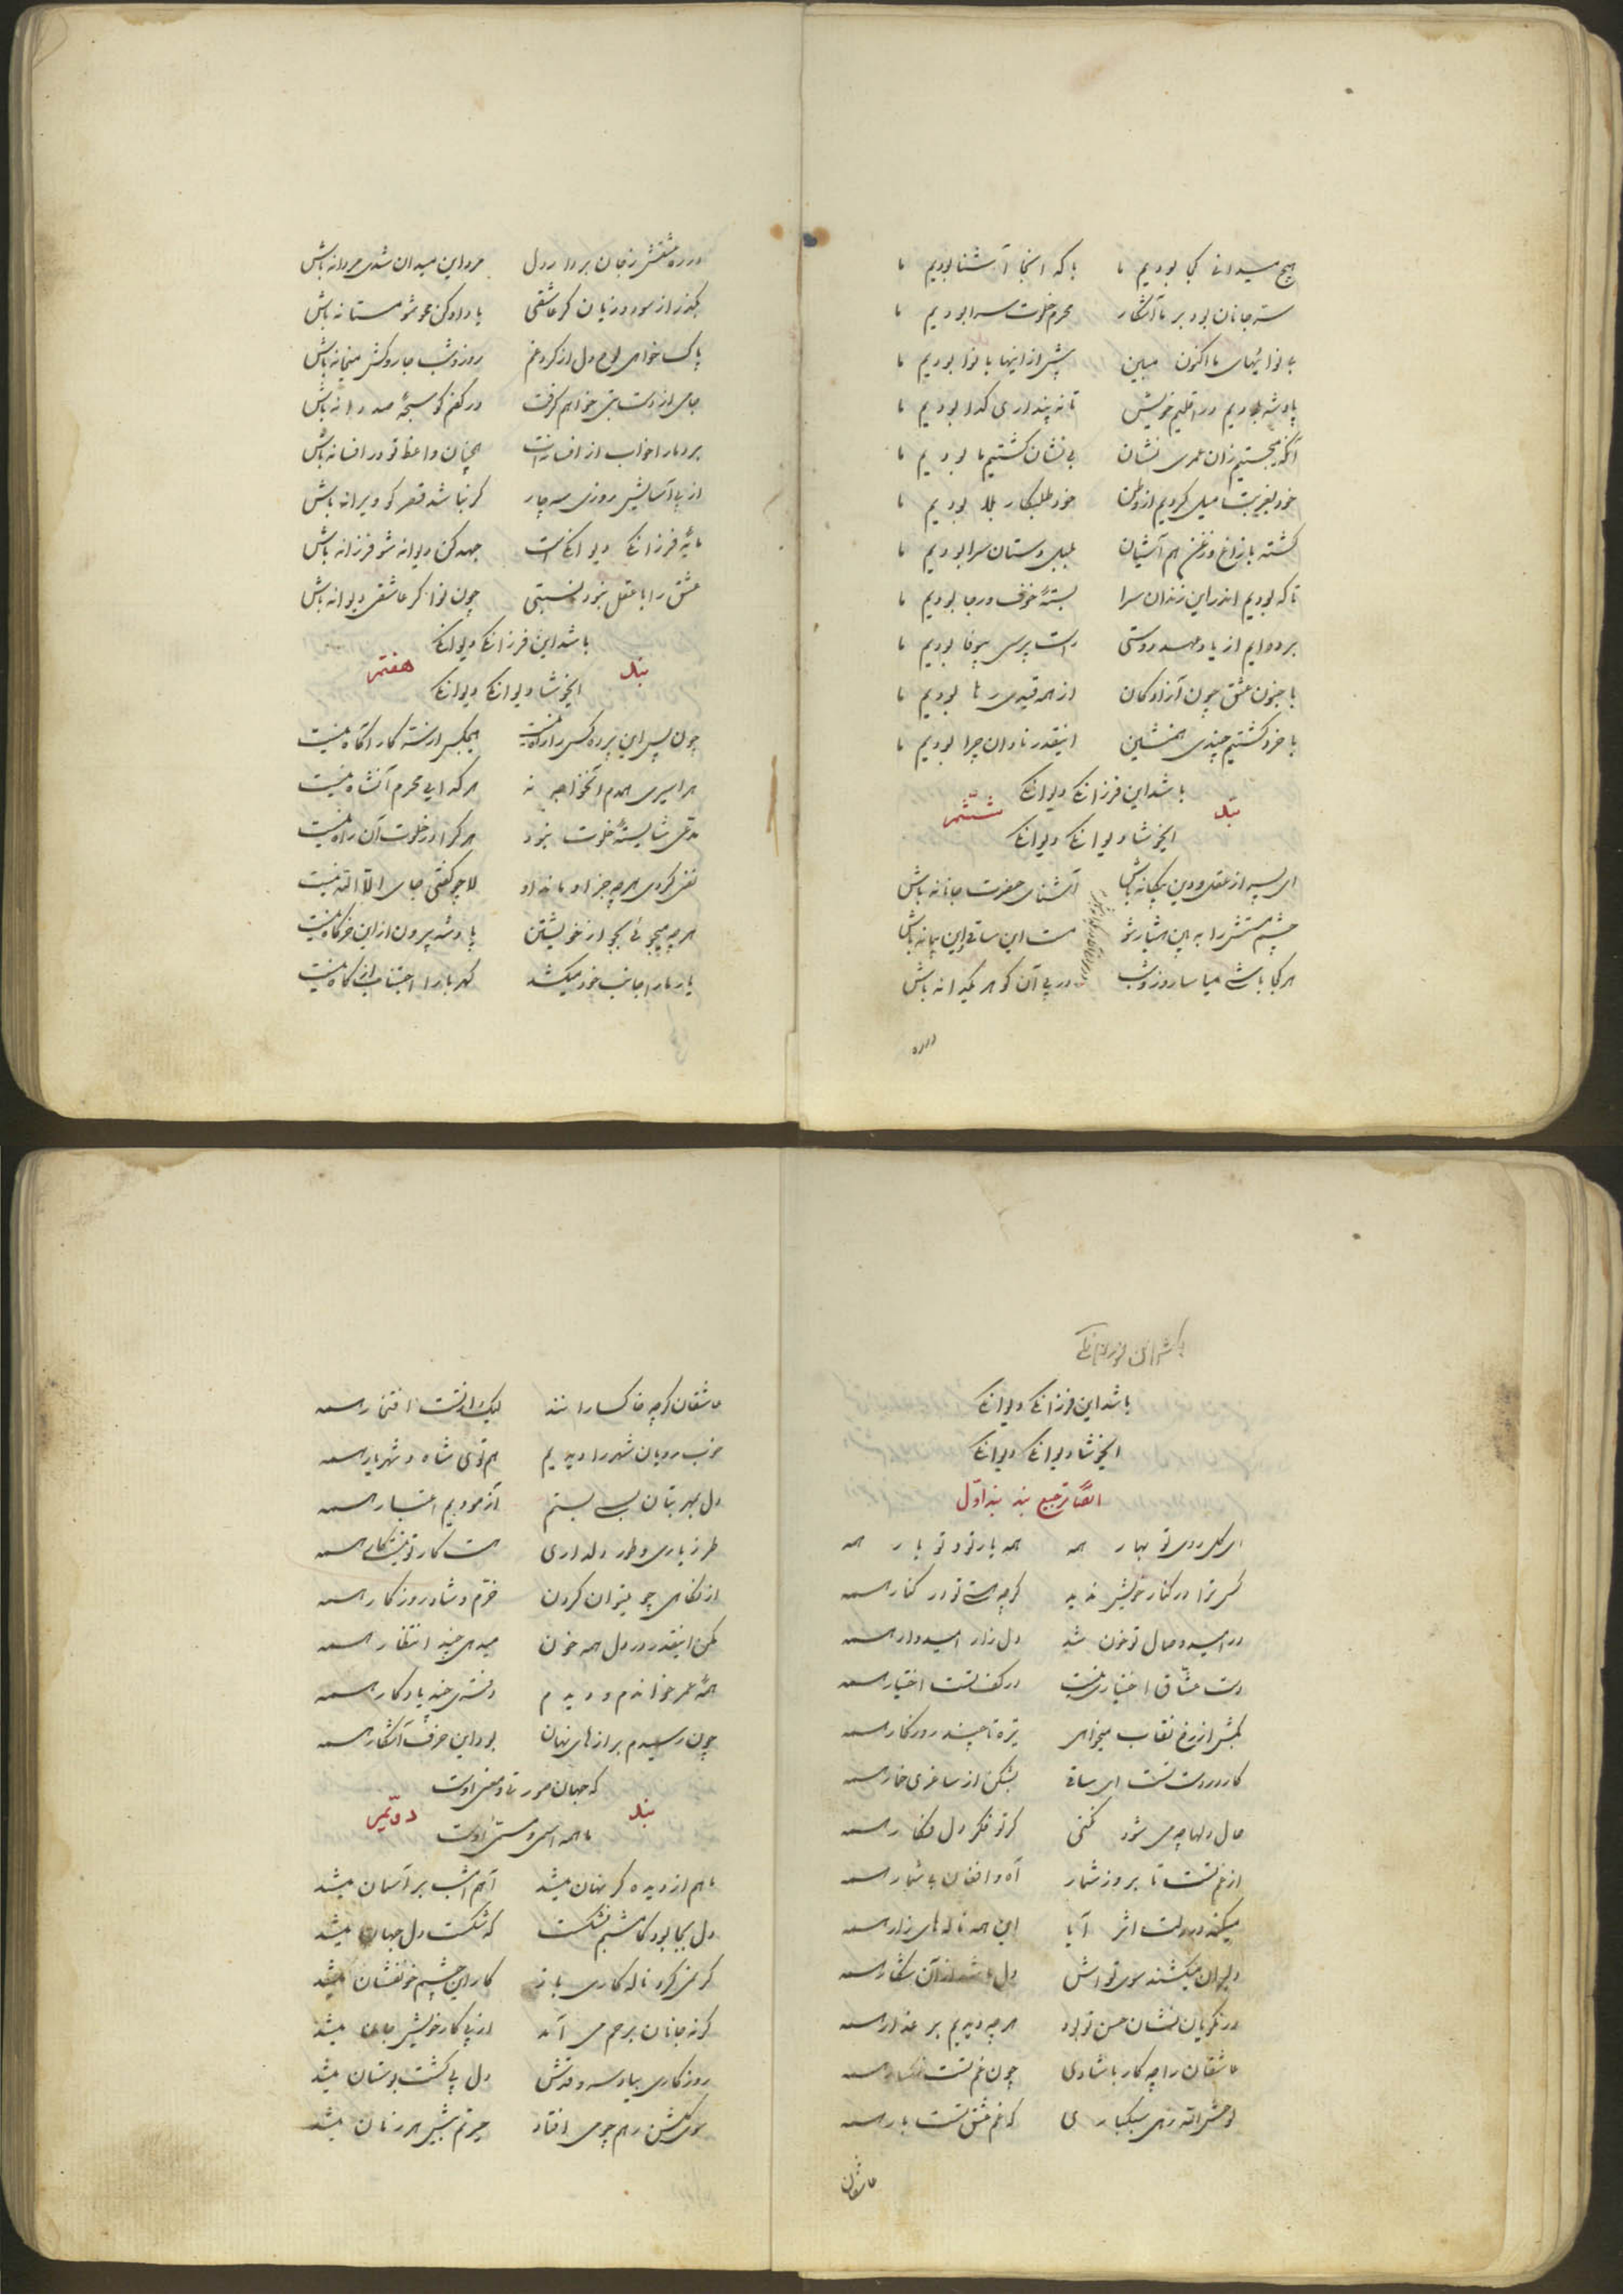 هیچ میدانی کجا بودیم ما  با که اینجا آشنا بودیم ما
ستر جانان بود بر ما آشکار  محرم خلوت سرا بودیم ما
بی نوائیهای ما اکنون مبین  پیش از اینها با نوا بودیم ما
پادشه بودیم در اقلیم خویش  تا نه پنداری گدا بودیم ما
آنکه میجستیم زان عمری نشان  بی نشان گشتیم ما بودیم ما
خود بغربت میل کردیم از وطن  خود طلبکار بلا بودیم ما
گشته با زاغ و زغن هم آشیان  بلبل دستان سرا بودیم ما
تا که بودیم اندر این زندان سرا  بستهٔ خوف و رجا بودیم ما
برده‌ایم از یاد عهد دوستی  راست پرسی بیوفا بودیم ما
با جنون عشق چون آزادگان  از همه قیدی رها بودیم ما
با خرد گشتیم چندی همنشین  اینقدر نادان چرا بودیم ما
باشد این فرزانگی دیوانگی
بند ششم
ایخوشا دیوانگی دیوانگی
ای پسر از عقل و دین بیگانه باش  آشنای حضرت جانانه باش
چشم مستش را ببین هشیار شو  مست این ساقی این پیمانه باش
هر کجا باشی میاسا روز و شب  در پی آن گوهر یکدانه باش
در ره
در ره عشقش ز جان بردار دل  مرد این میدان شدی مردانه باش
بگذر از سود و زیان گر عاشقی  یا رها کن محو شو مستانه باش
پاک خواهی لوح دل از گرد غم  روز و شب جاروکش میخانه باش
جای از دست بتی خواهم گرفت  در کفم گو سبحهٔ صد دانه باش
برد ما را خواب از افسانه‌ات  همچنان واعظ تو در افسانه باش
از پی آسایش روزی سه چار  گر نباشد قصر گو ویرانه باش
مایهٔ فرزانگی دیوانگی است  جهد کن دیوانه شو فرزانه باش
عشق را با عقل نبود نسبتی  چون نوا گر عاشقی دیوانه باش
باشد این فرزانگی دیوانگی
بند هفتم
ایخوشا دیوانگی دیوانگی
چون پس این پرده کس را راه نیست  هیچکس از سته کار آگاه نیست
هر اسیری همدم آنخواجه نه  هر گدایی محرم آنشاه نیست
مدعی شایستهٔ خلوت نبود  هر کرا در خلوت آن راه نیست
نفی کردی هر چه جز او ماند او  لا چو گفتی جای الا الله نیست
هر چه میجوئی بجو از خویشتن  پادشه بیرون از این خرگاه نیست
یار ما را جانب خود میکشد  کهربا را اجتناب از کاه نیست
باشد این فرزانگی
باشد این فرزانگی دیوانگی
ایخوشا دیوانگی دیوانگی
ایضاً ترجیع بند بند اول
ای گل روی تو بهار همه  همه یار تو و تو یار همه
کس ترا در کنار خویش ندید  گرچه هستی تو در کنار همه
در امید وصال تو خون شد  دل زار امیدوار همه
دست عشاق اختیاری نیست  در کف تست اختیار همه
بکش از رخ نقاب میخواهی  تیره تا چند روزگار همه
کار در دست تست ای ساقی  بشکن از ساغری خمار همه
حال دلها چه می شود نکنی  گر تو فکر دل فکار همه
از غم تست تا بروز شمار  آه و افغان بی شمار همه
میکند در دلت اثر آیا  این همه ناله‌های زار همه
دلبران میکشند سوی تواش  دل باشد از آن شکار همه
در نکویان نشان حسن تو بود  هر چه دیدیم بر عذار همه
عاشقان را چه کار با شادی  چون غم تست غمگسار همه
لوحش الله زهی سبکباری  که غم عشق تست بار همه
عاشقان
عاشقان گرچه خاکسارانند  لیک از تست افتخار همه
خوب رویان شهر را دیدیم  هم توئی شاه و شهریار همه
دل بمهر بتان بسی بستم  آزمودیم اعتبار همه
طرز یاری و طور دلداری  هست کار تو نیست کار همه
از نگاهی چو میتوان کردن  خرم و شاد روزگار همه
مکن اینقدر در دل همه خون  میدهی چند انتظار همه
همهٔ عمر خواندم و دیدم  دفتری چند یادگار همه
چون رسیدم براز های نهان  بود این حرف آشکار همه
که جهان صورت و معنی اوست
بند دویم
ما همه اسم و مسمی اوست
ماهم از دیده گر نهان میشد  آهم امشب بر آسمان میشد
دل بجا بود کاشم نشکست  که شکست دل جهان میشد
گر نمی کرد ناله کاری باز  کار این چشم خونفشان میشد
گر نه جانان برحم می آمد  از پی کار خویش جان میشد
روزگاری بیاد سرو قدش  دل پی گشت بوستان میشد
سوی گلشن رهم چو می افتاد  حیرتم بیش هر زمان میشد